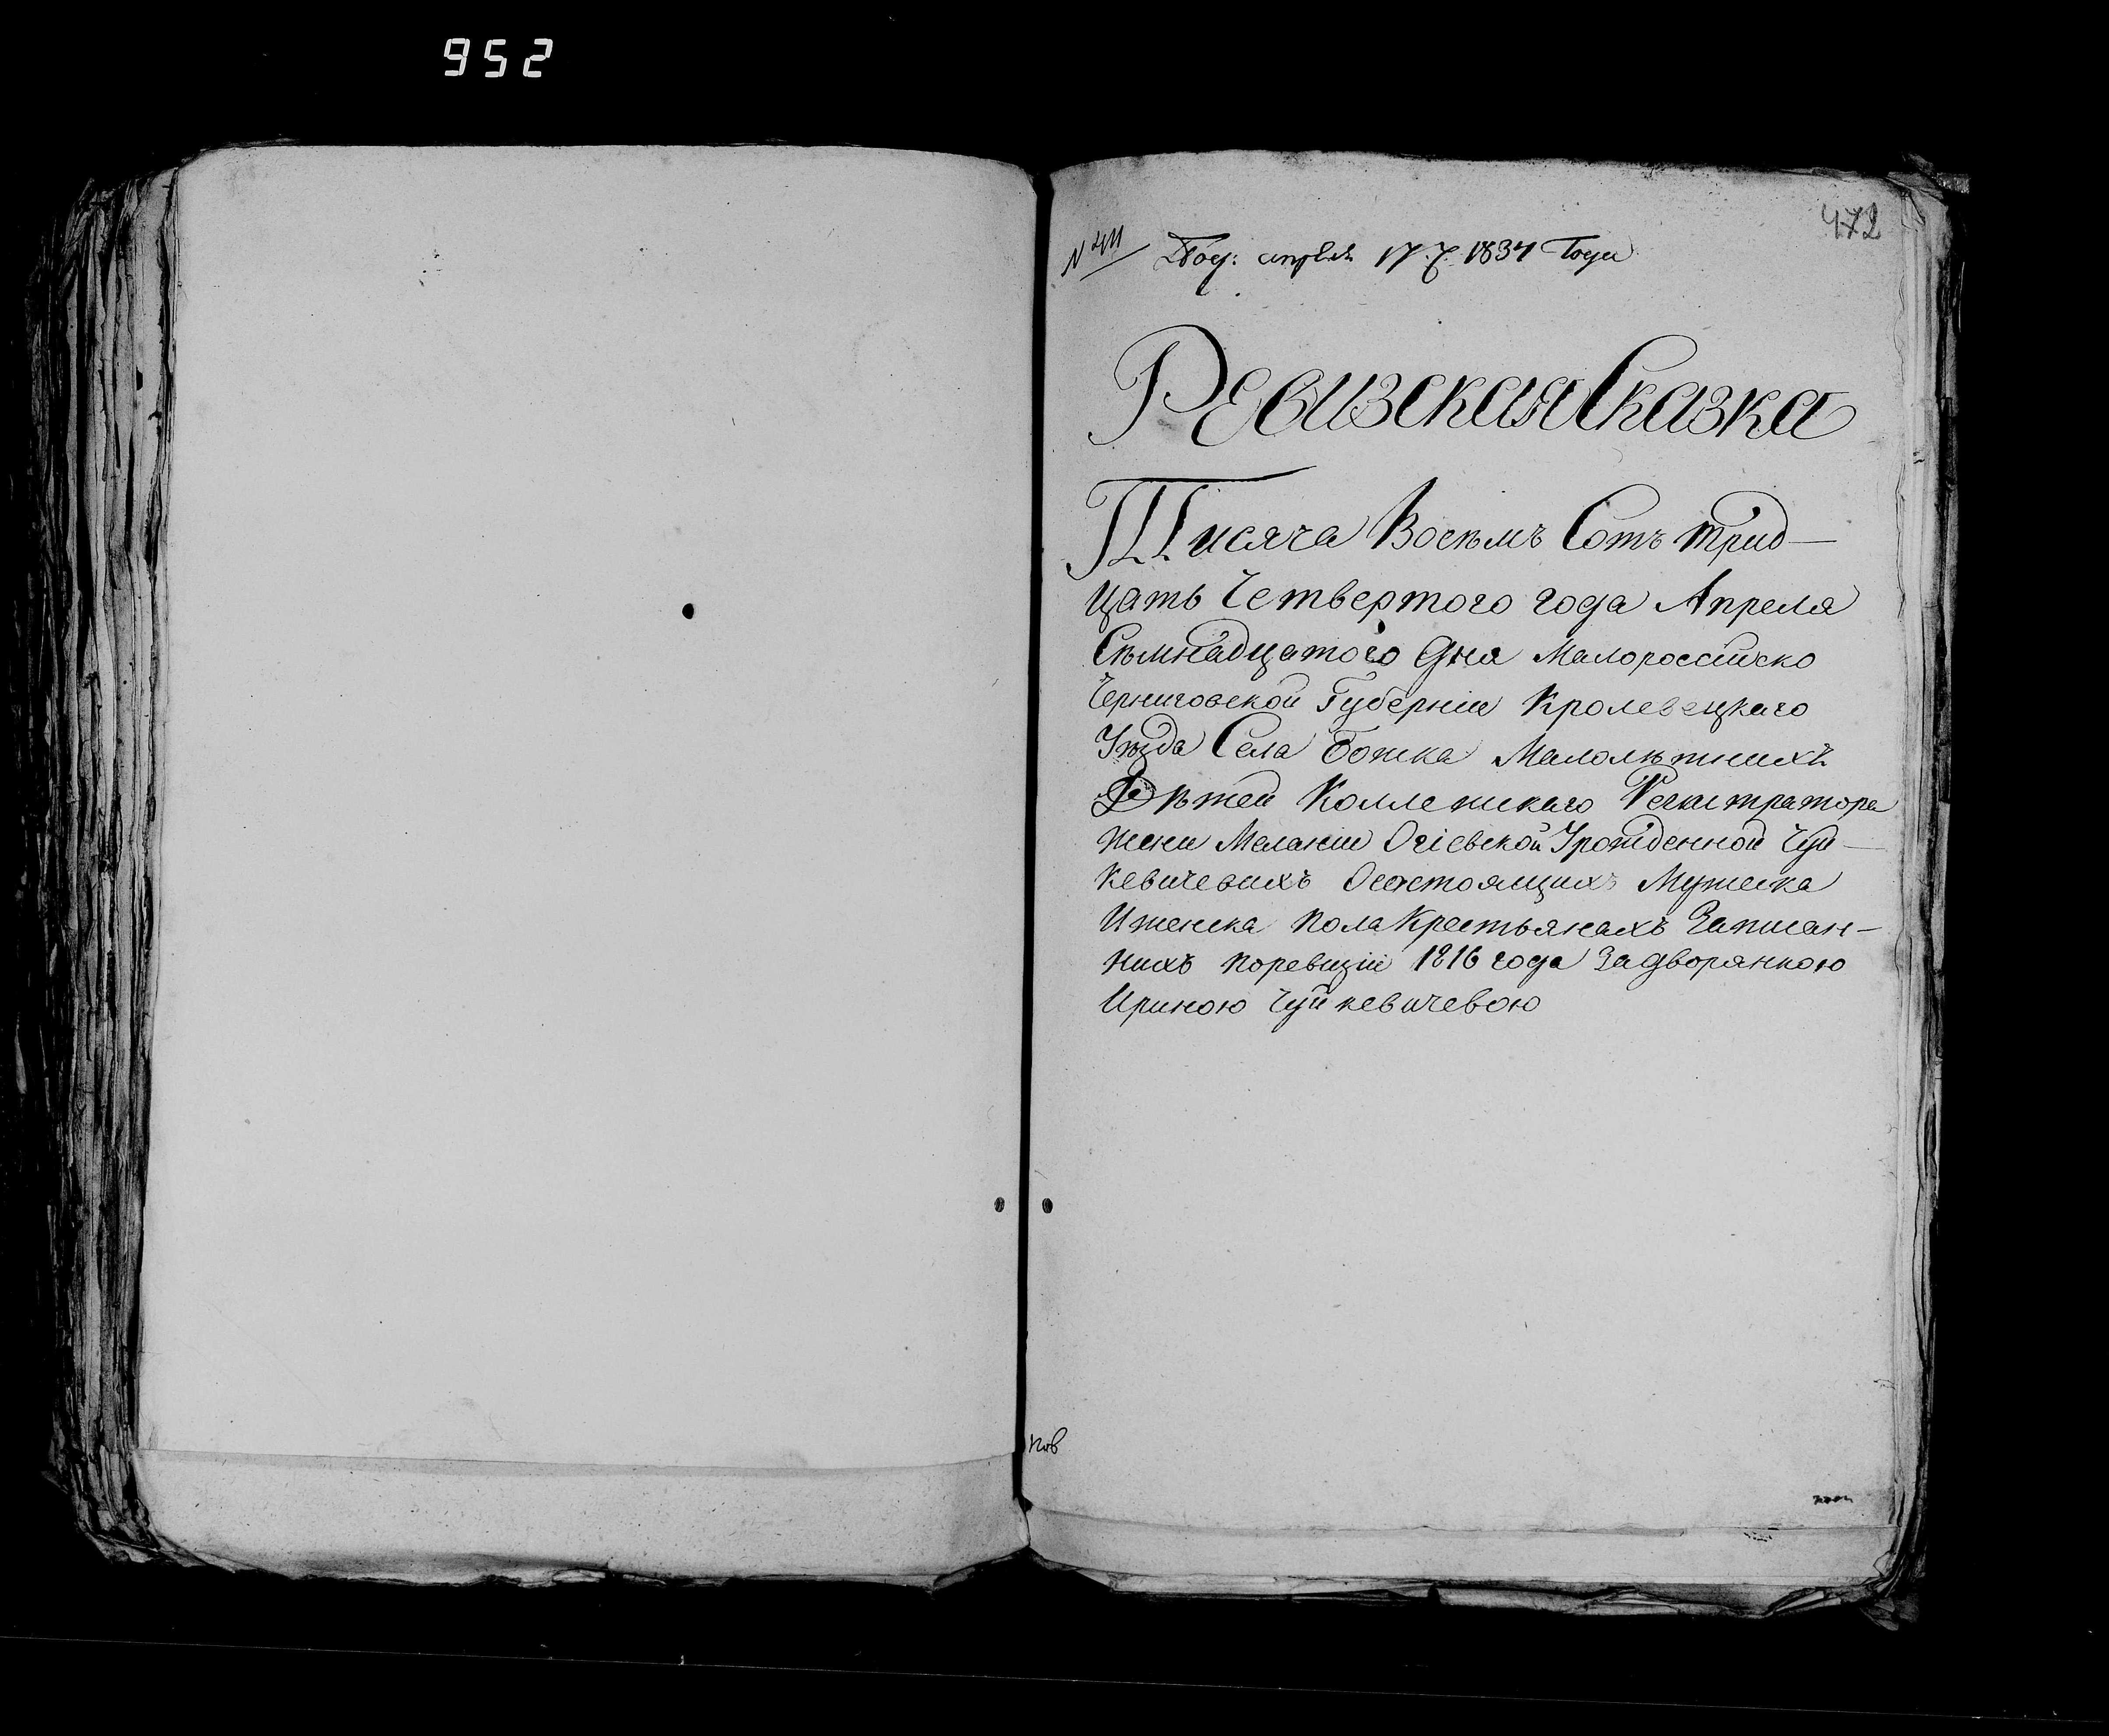 952
472
№ 411 Под: апреля 17 д. 1834 Года
Ревизская Сказка
Тисяча Восѣмъ Сотъ трид—
цать Четвертого года Апреля
Сѣмнадцатого Дня Малороссійско
Черниговской Губерніи Кролевецкаго
Уѣзда Села Божка Малолѣтнихъ
Дѣтей Коллежскаго Регистратора
жени Меланіи Огіевской Урожденной Чуй—
кевичевихъ Осостоящихъ Мужеска
Иженска пола Крестьянахъ Записан—
нихъ поревизіи 1816 года Задворянкою
Ириною Чуйкевичевою
пов